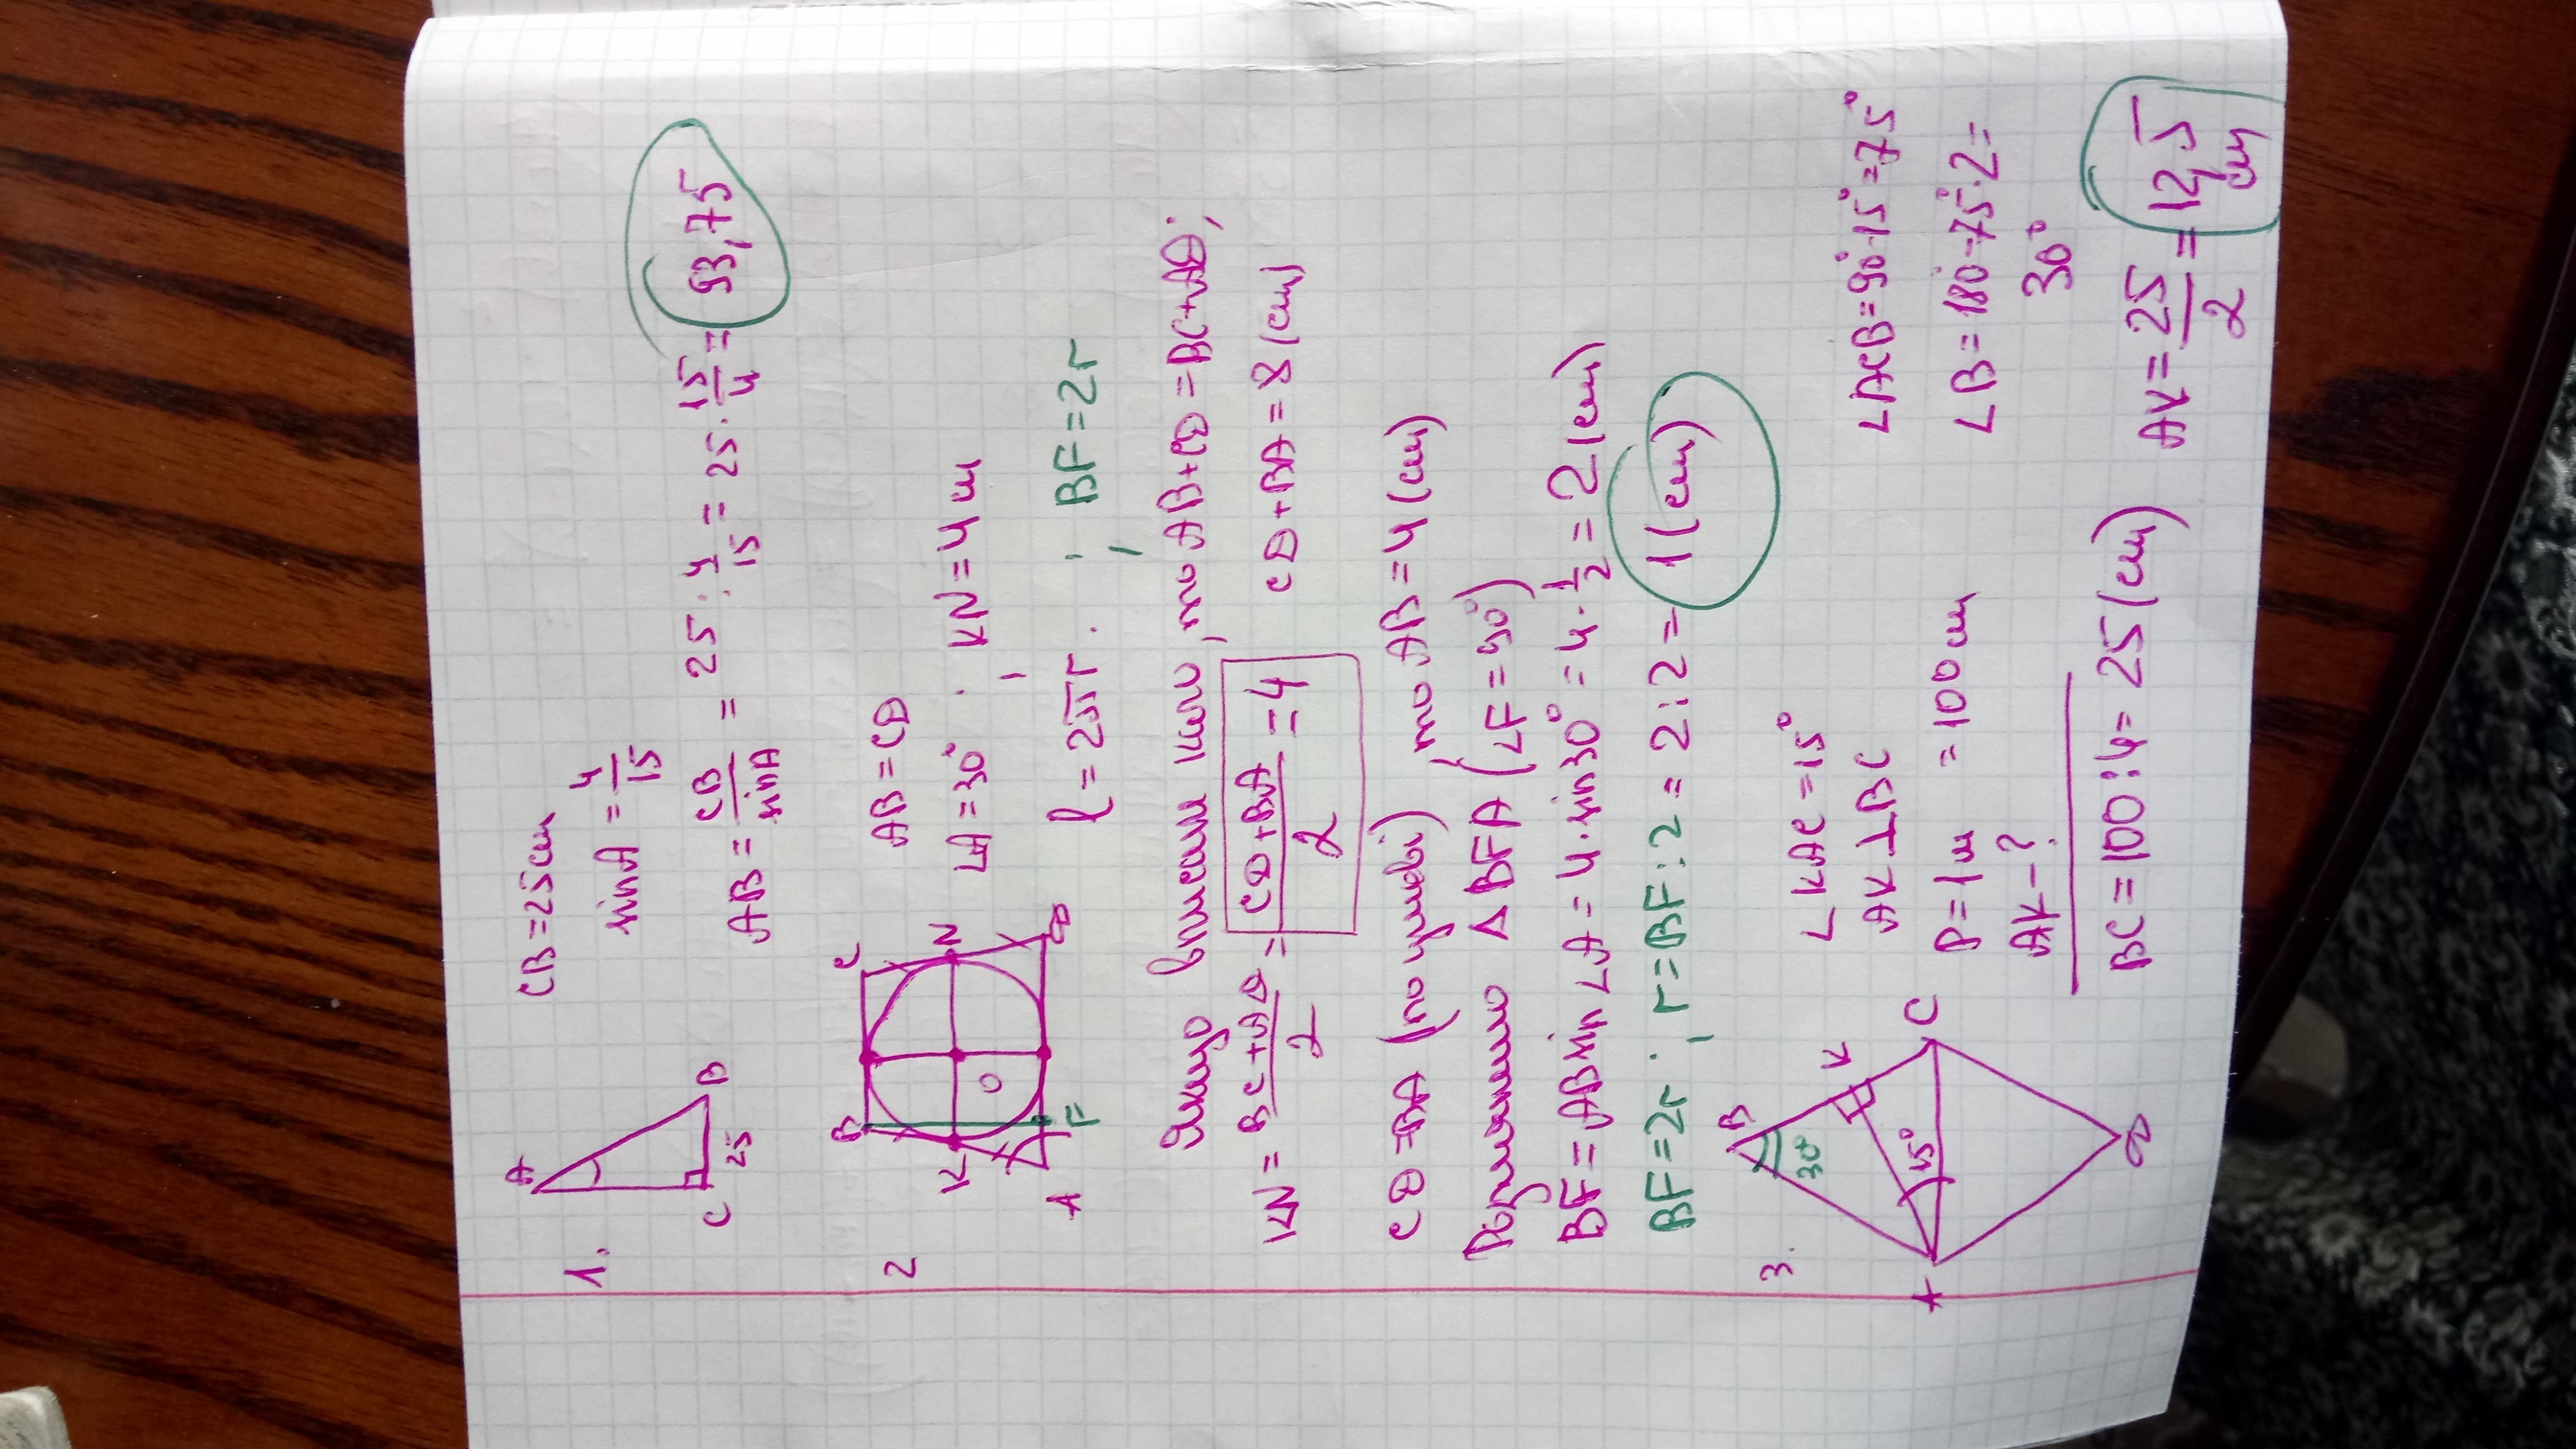 1.
A
C
B
25
CB = 25 см
sin A = 4/15
AB = CB/sin A = 25 : 4/15 = 25 · 15/4 = 93,75
2
B
C
K
N
O
A
F
D
AB = CD
∠A = 30° ; KN = 4 см
l = 2πr. ; BF = 2r
Якщо вписати коло, то AB + CD = BC + AD;
KN = BC + AD/2 = CD + BA/2 = 4 CD + BA = 8 (см)
CD = BA (по умові), то AB = 4 (см)
Розглянемо Δ BFA (∠F = 90°)
BF = AB sin ∠A = 4 · sin 30° = 4 · 1/2 = 2 (см)
BF = 2r ; r = BF : 2 = 2 : 2 = 1 (см)
3.
B
30°
K
15°
A
C
D
∠KAC = 15°
AK ⊥ BC
P = 1 м = 100 см
AK - ?
∠ACB = 90° - 15° = 75°
∠B = 180° - 75° · 2 =
30°
BC = 100 : 4 = 25 (см) AK = 25/2 = 12,5
см